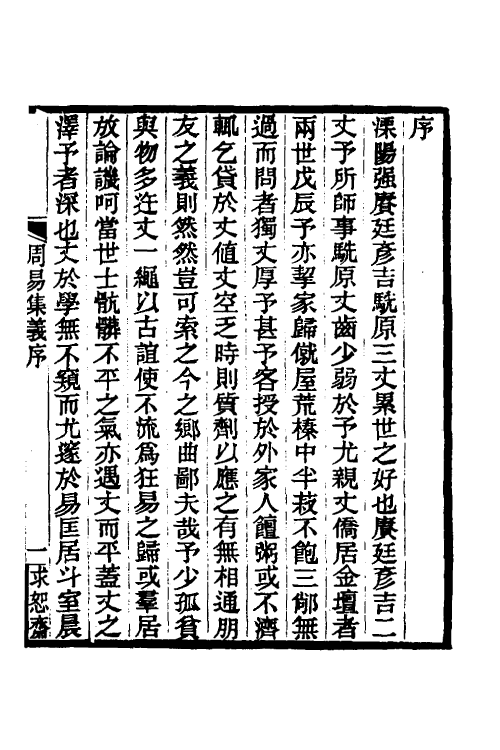 序
溧陽强賡廷彥吉駪原三丈累世之好也賡廷彥吉二
丈予所師事駪原丈齒少弱於予尤親丈僑居金壇者
兩世戊辰予亦挈家歸僦屋荒榛中半菽不飽三郇無
過而問者獨丈厚予甚予客授於外家人饘粥或不濟
輒乞貸於丈值丈空乏時則質劑以應之有無相通朋
友之義則然然豈可索之今之鄉曲鄙夫哉予少孤貧
與物多迕丈一繩以古誼使不流爲狂易之歸或羣居
放論譏呵當世士骯髒不平之氣亦遇丈而平蓋丈之
澤予者深也丈於學無不窺而尤邃於易匡居斗室晨
周易集義序
一
求恕齋